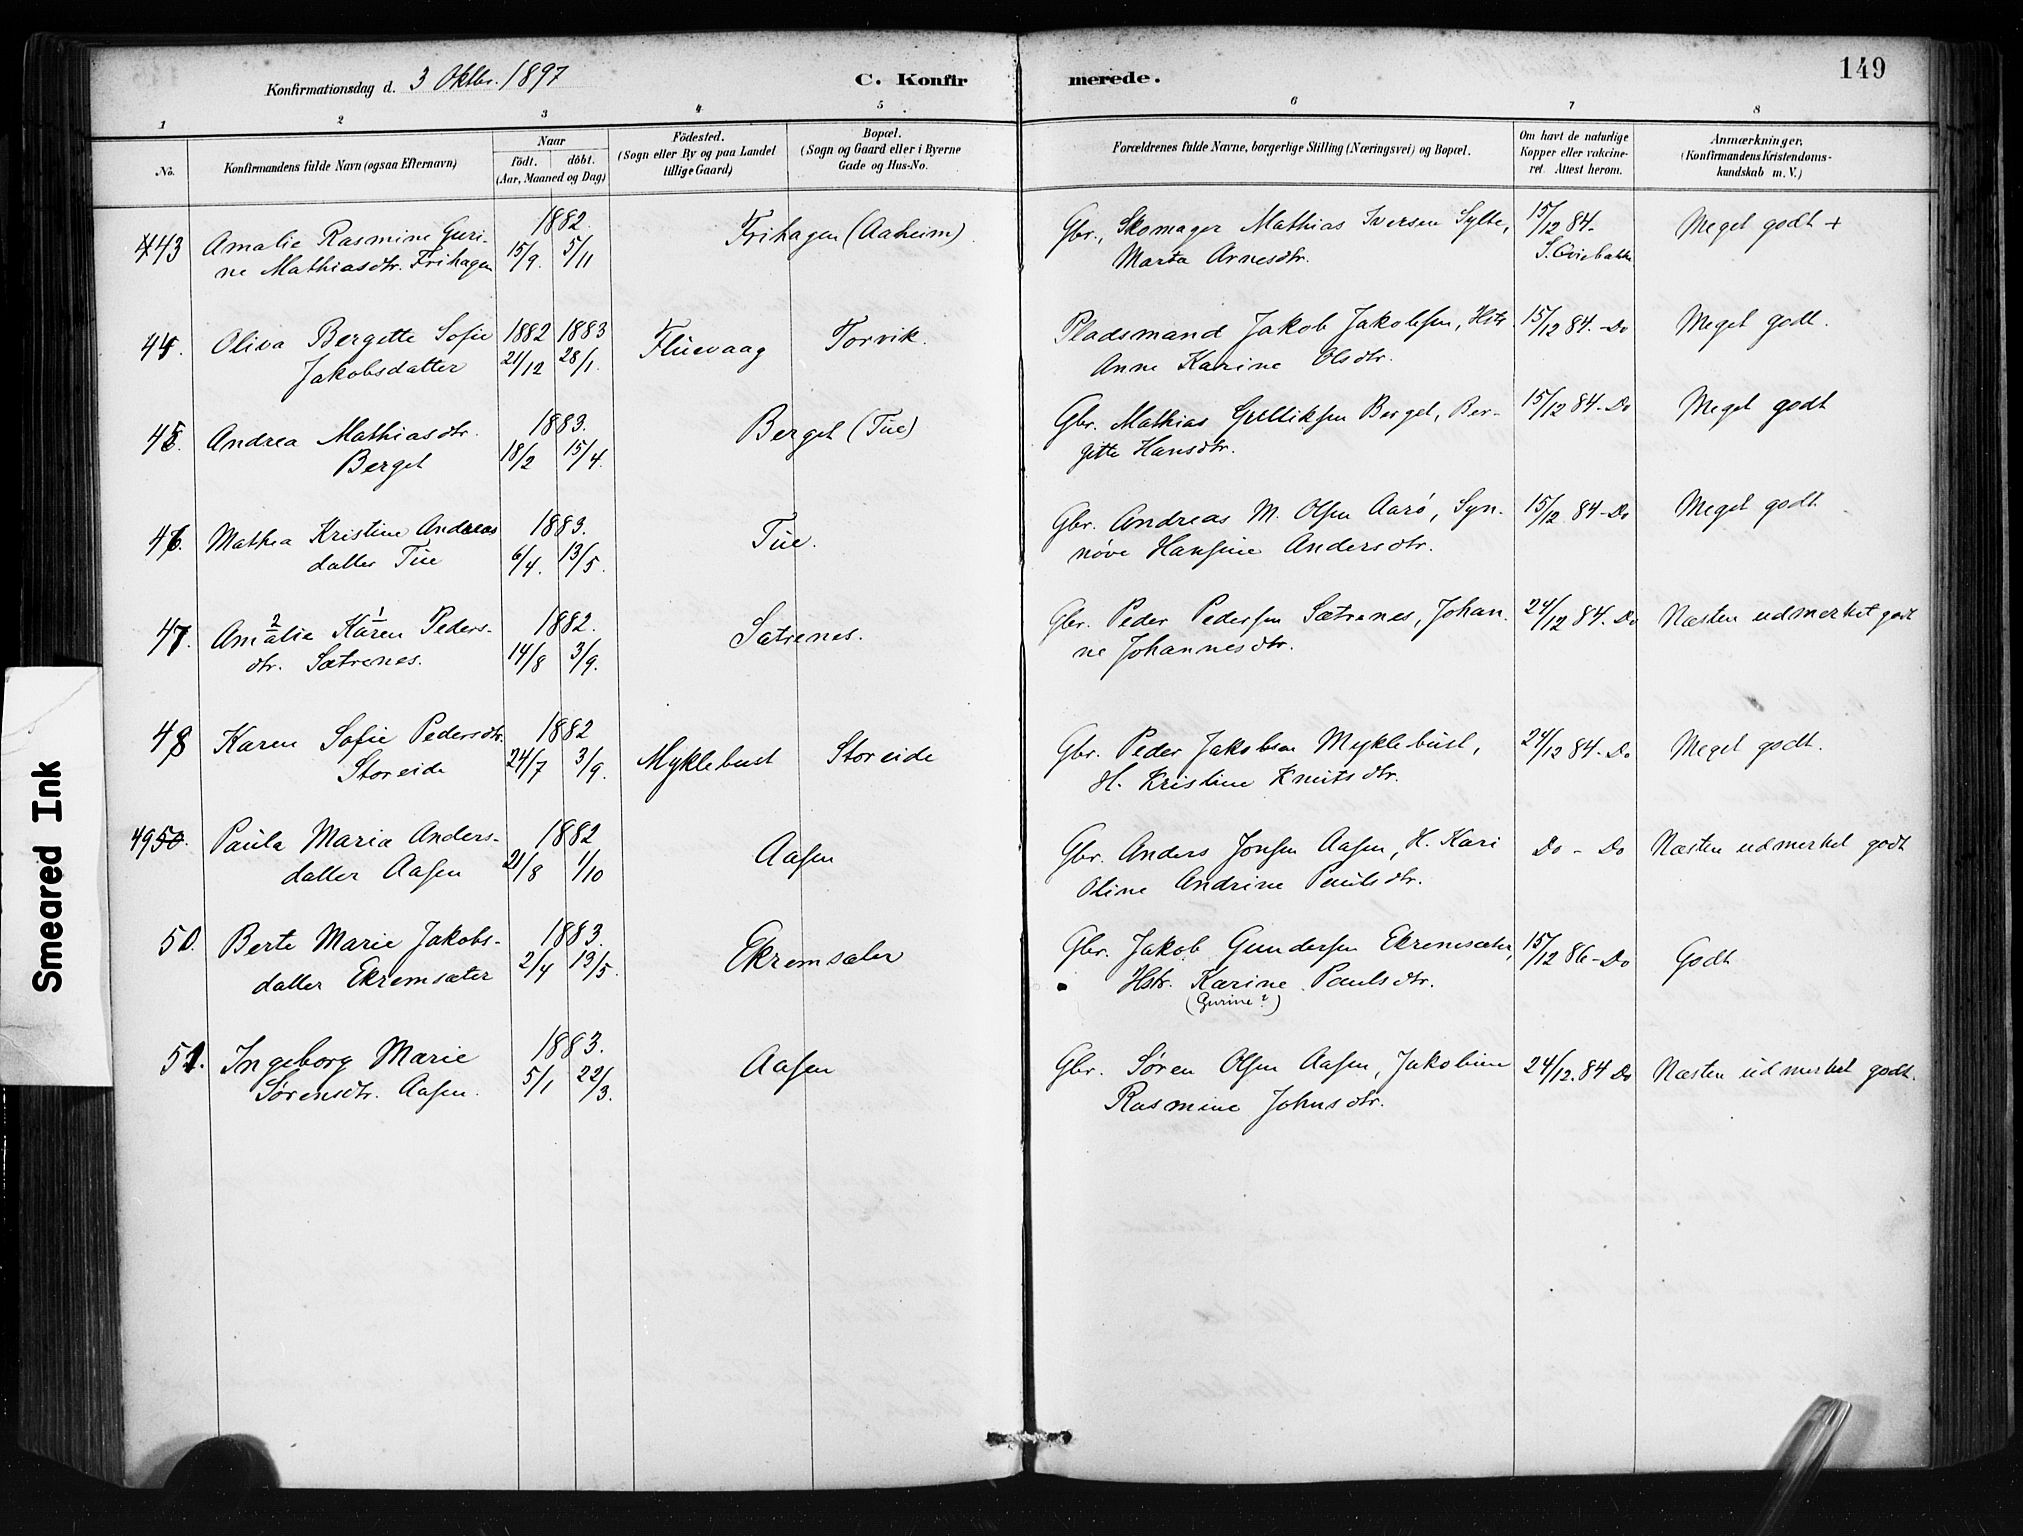 149
Konfirmationsdag d. 3 Oktbr. 1897
C. Konfirmerede.
1 2 3 4 5 6 7 8
No.
Konfirmandens fulde Navn (ogsaa Efternavn)
Naar
født. døbt.
(Aar, Maaned og Dag)
Födested.
(Sogn eller By og paa Landet
tillige Gaard)
Bopæl.
(Sogn og Gaard eller i Byerne
Gade og Hus-No.
Forældrenes fulde Navne, borgerlige Stilling (Næringsvei) og Bopæl.
Om havt de naturlige
Kopper eller vakcine-
ret. Attest herom.
Anmærkninger.
(Konfirmandens Kristendoms-
kundskab m. V.)
443 Amalie Rasmine Guri-
ne Mathiasdtr. Frihagen
1882.
15/9. 5/11
Frihagen (Aaheim)
Gbr., Skomager Mathias Iversen Sylte,
Marta Arnesdtr.
15/12 84-
Meget godt +
44. Oliva Bergitte Sofie
Jakobsdatter
1882 1883
21/12 28/1.
Fluevaag Torvik.
Pladsmand Jakob Jakobsen, Hstr.
Anne Karine Olsdtr.
15/12 84.-Do
Meget godt.
45. Andrea Mathiasdtr.
Berget
1883.
18/2 15/4.
Berget (Tue)
Gbr. Mathias Gulliksen Berget, Ber-
gitte Hansdtr.
15/12 84-Do
Meget godt
46. Mathea Kristine Andreas
datter Tue
1883.
6/4. 13/5.
Tue.
Gbr. Andreas M. Olsen Aarø, Syn-
nøve Hansine Andersdtr.
15/12 84-Do
Meget godt.
47. Amalie Karen Peders-
2 1
dtr. Sætrenes.
1882.
14/8 3/9.
Sætrenes.
Gbr. Peder Pedersen Sætrenes, Johan-
ne Johannesdtr.
24/12 84. Do
Næsten udmerket godt
48 Karen Sofie Pedersdtr.
Storeide
1882
24/7 3/9.
Myklebust Storeide
Gbr. Peder Jakobsen Myklebust,
H. Kristine Knutsdtr.
24/12 84-Do
Meget godt.
49 50. Paula Maria Anders-
datter Aasen
1882
21/8 1/10
Aasen
Gbr. Anders Jonsen Aasen, H. Kari
Oline Andrine Paulsdtr.
Do - Do
Næsten udmerket godt
50. Berte Marie Jakobs-
datter Ekremsæter
1883.
2/4 13/5.
Ekremsæter
Gbr. Jakob Gundersen Ekremsæter,
Hstr. Karine Paulsdtr.
(Gurine?)
15/12 86-Do
Godt
51. Ingeborg Marie
Sørensdtr. Aasen.
1883.
5/1 22/3.
Aasen
Gbr. Søren Olsen Aasen, Jakobine
Rasmine Johnsdtr.
24/12.84 Do
Næsten udmerket godt.
Smeared Ink